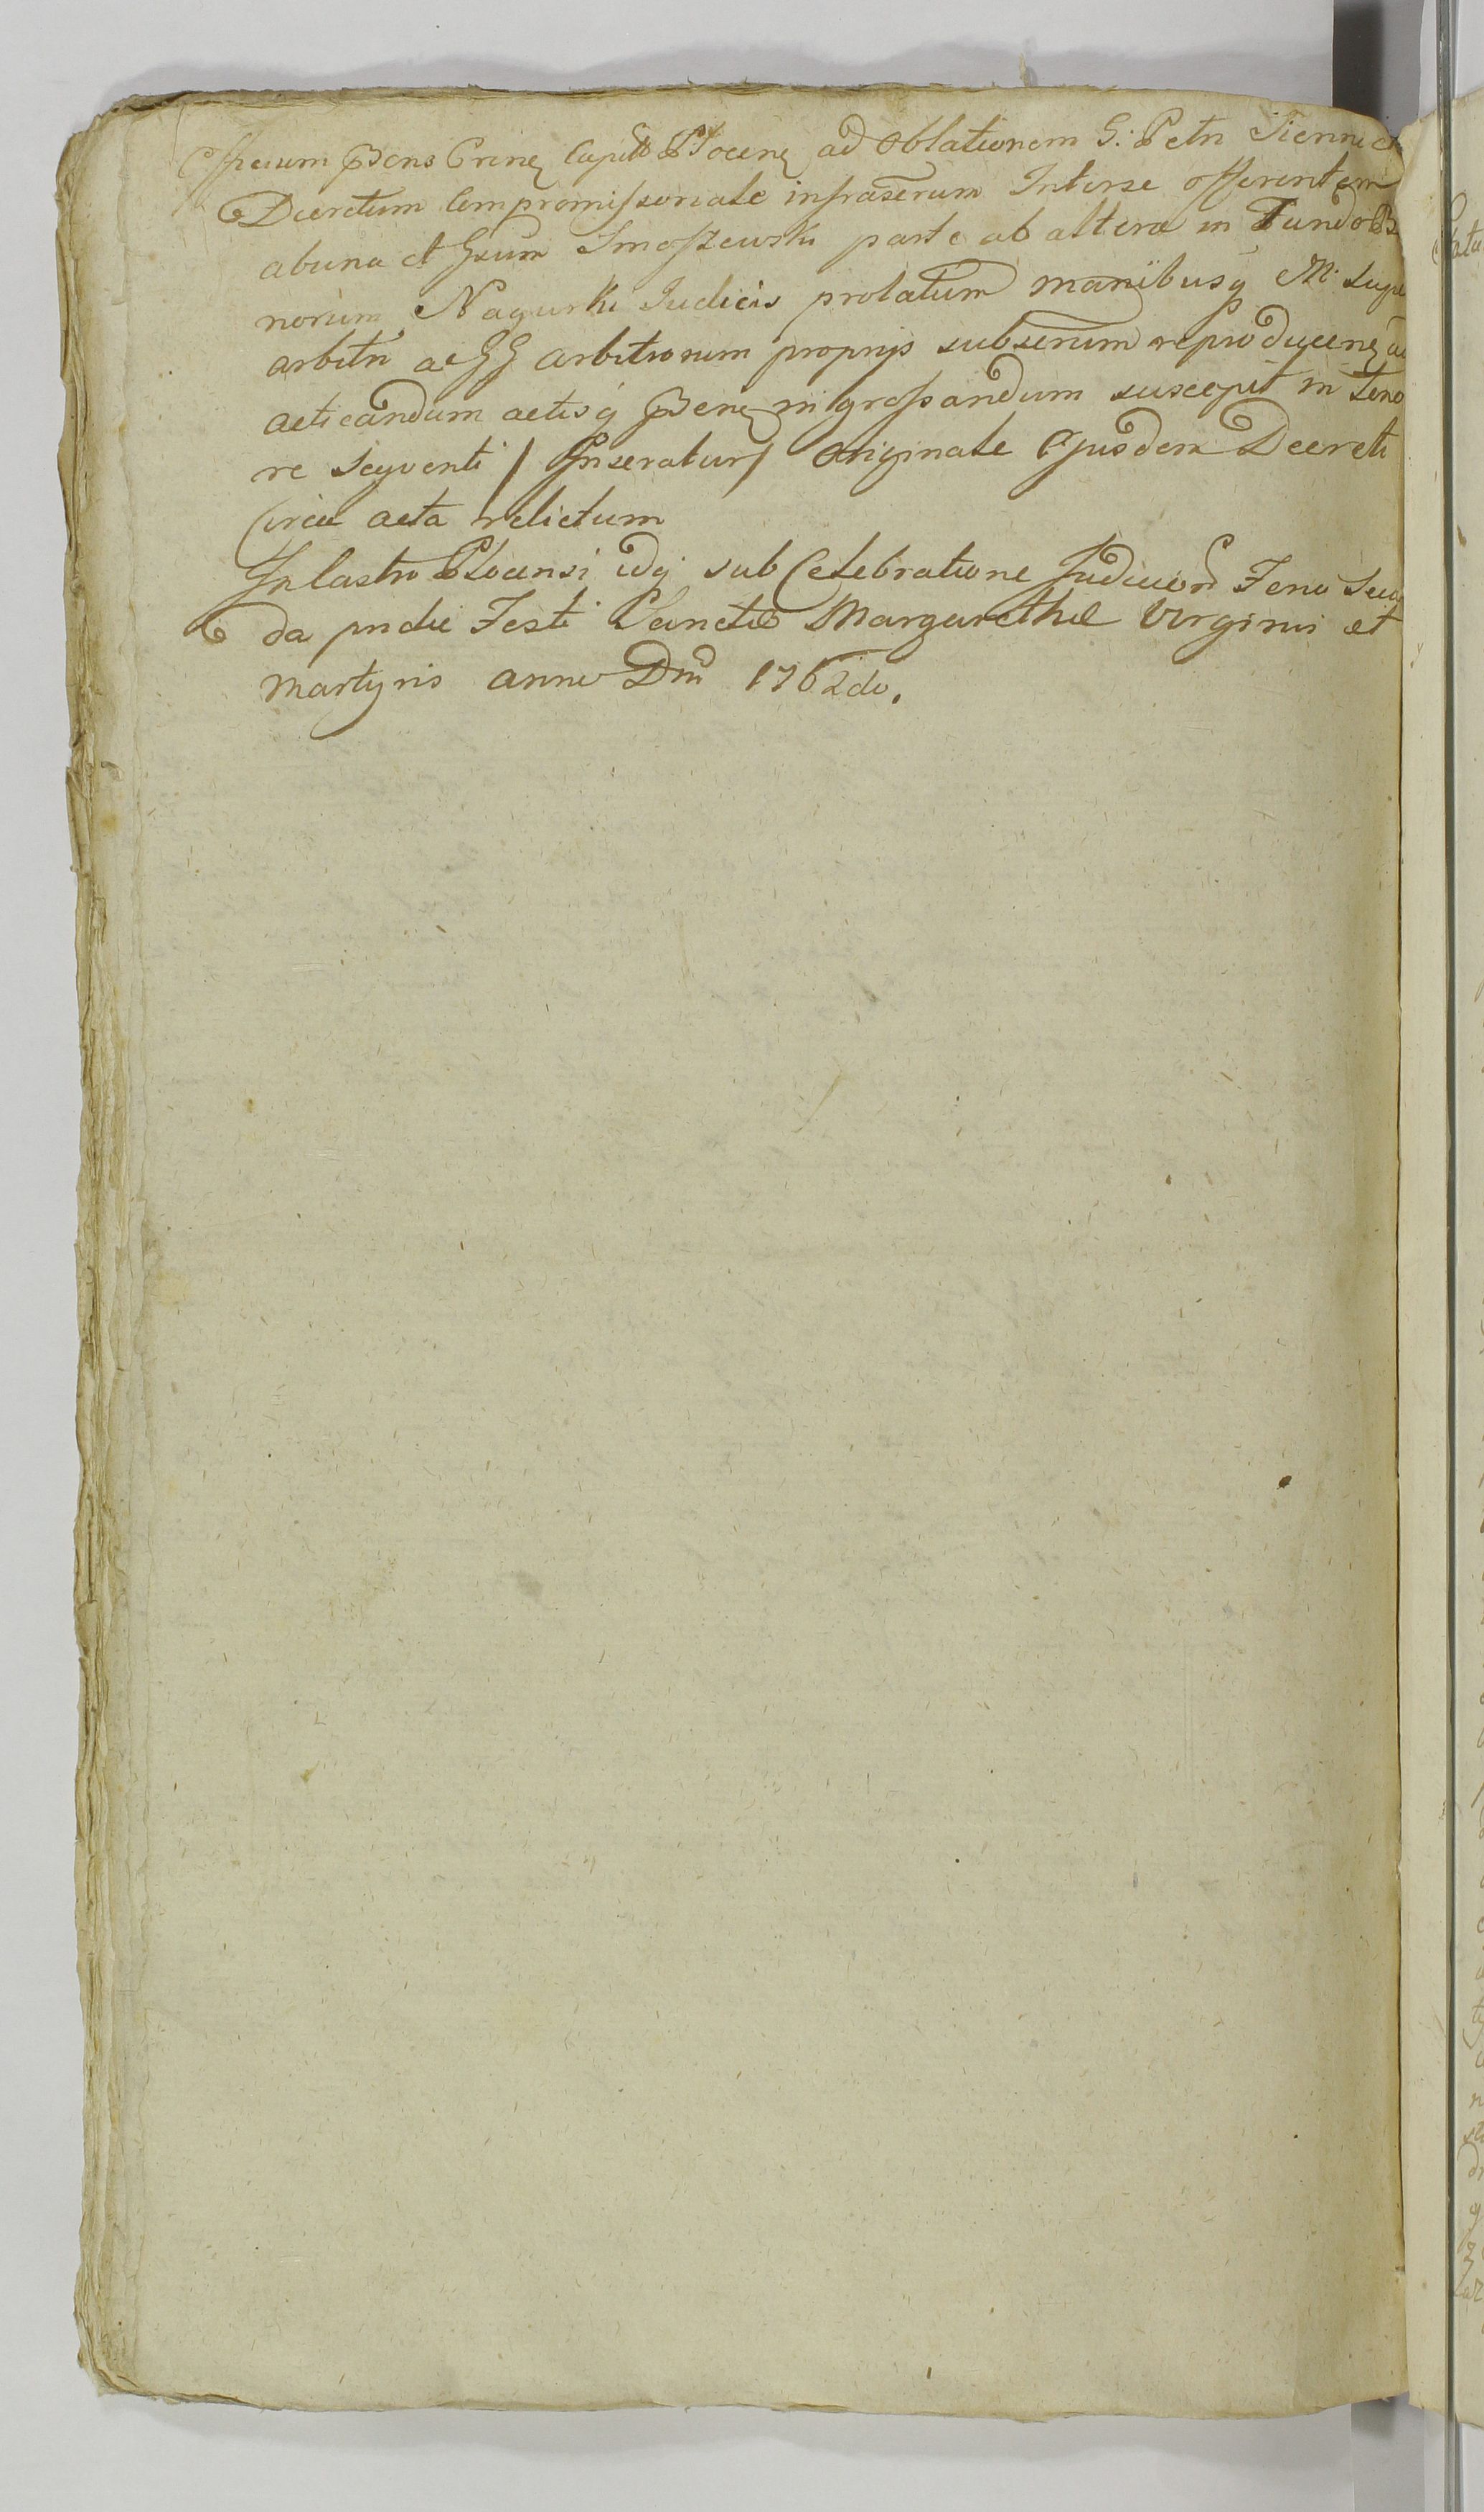 Officium Pbens Crinę Capitł Płocenę ad oblationem G: Petri Siennicki
Decretum Compromissoriale infrascrum Interse offerentem
abuna et Gsum Smoszewski parte ab altera in Fundo B
norum Nagurki Iudicis prolatum manibusq M: Supe
arbitri ac GG arbitrorum proprijs subscrum reproducenę ac
acticandum actisq Pbenę ingrossandum suscepit in teno
re seqventi / Inseratur / originale Ejusdem Decreti
Circa acta relictum
In Castro Plocensi idq sub Celebratione Judicior Feria Secu
da pridie Festi Sanctæ Margarethæ Virginis et
martyris anno Dni 1762do.